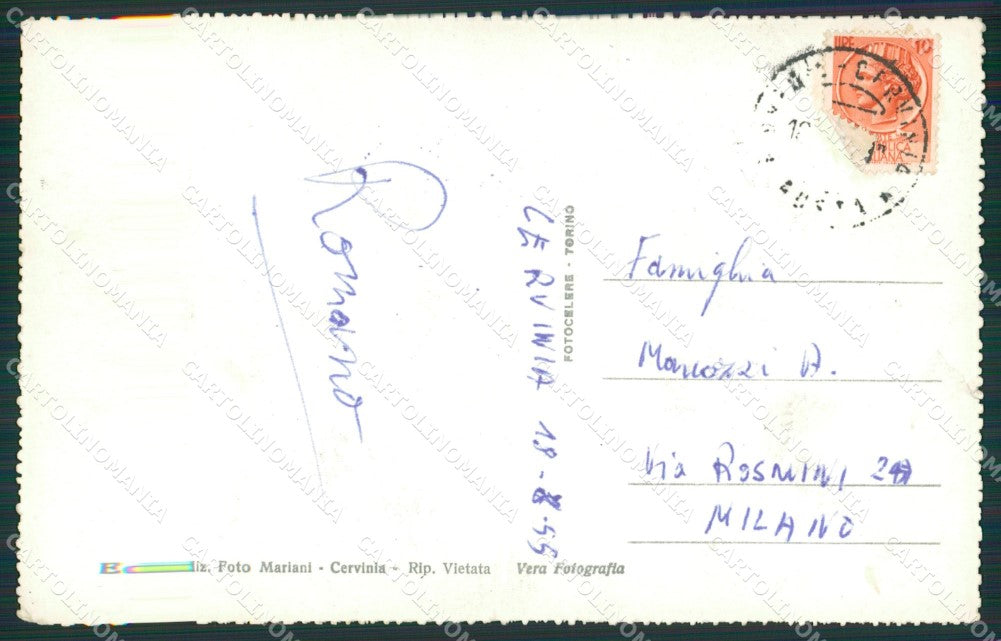 Romano
CERVINIA 19-8-55
FOTOCELERE - TORINO
Famiglia
Marcozzi A.
Via ROSMINI
MILANO
LIRE 10
CERVINIA
AOSTA
iz. Foto Mariani - Cervinia - Rip. Vietata
Vera Fotografia
CARTOLINOMANIA